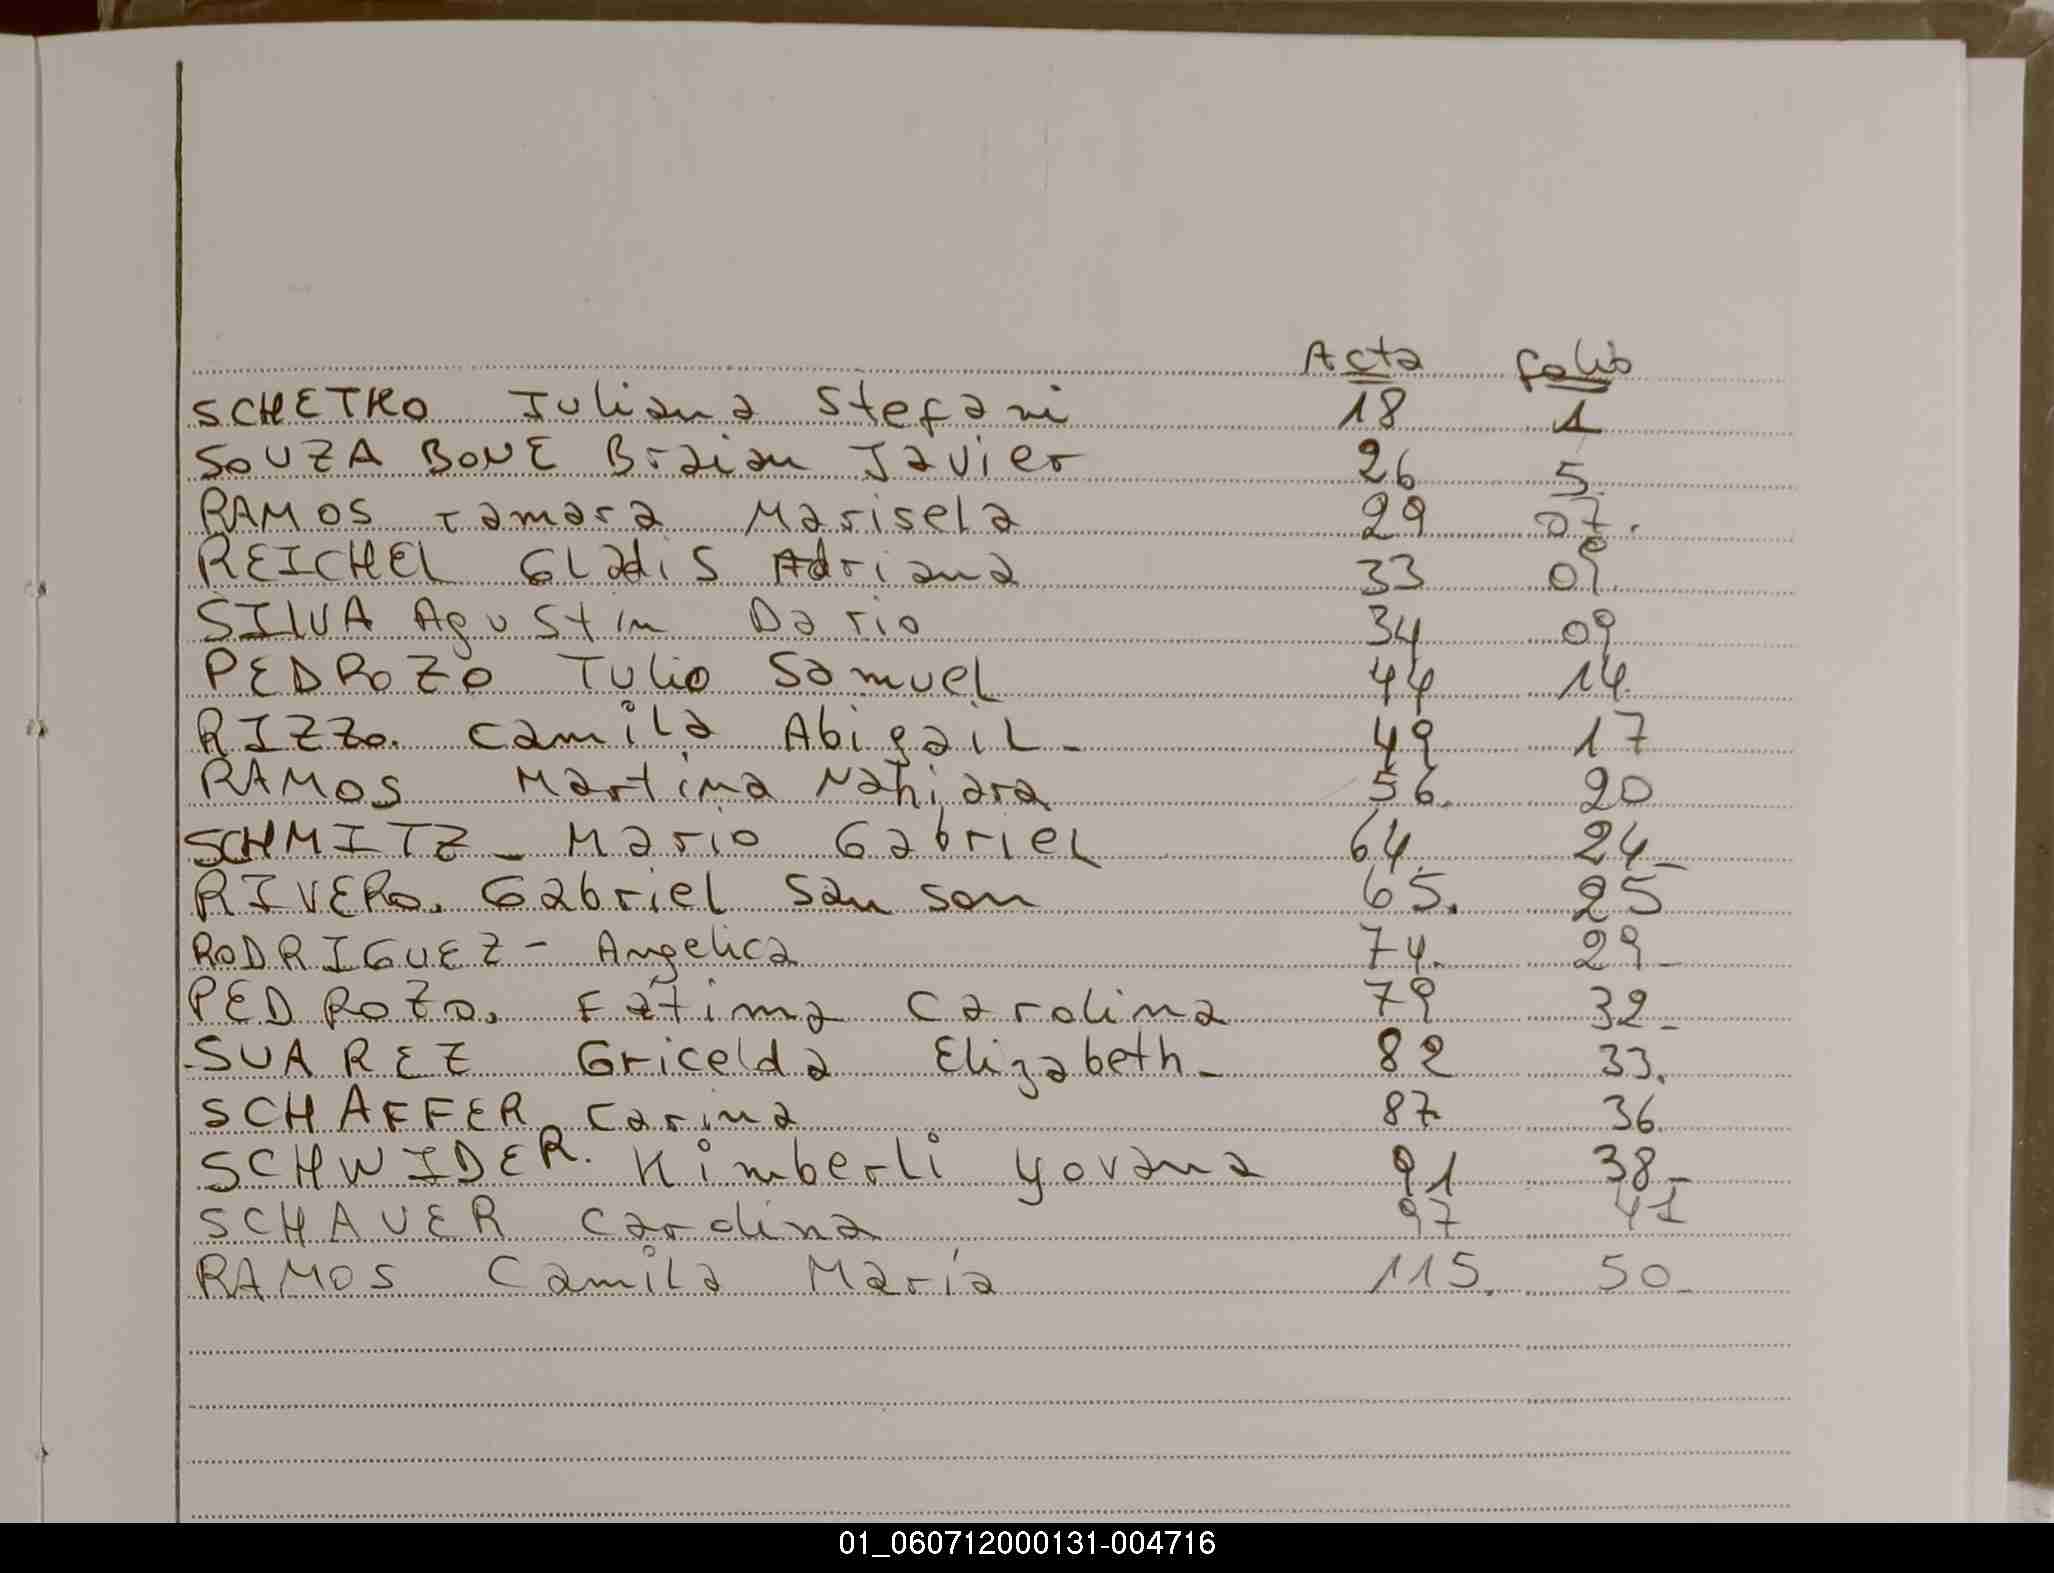 Acta folio
SCHETKO Juliana Stefani 18 1
SOUZA BONE Braian Javier 26 5.
RAMOS Tamara Marisela 29 07.
REICHEL Gladis Adriana 33 09.
SILVA Agustin Dario 34 09
PEDROZO Tulio Samuel 44 14.
RIZZO. Camila Abigail - 49 17
RAMOS Martina Nahiara 56. 20
SCHMITZ - Mario Gabriel 64. 24-
RIVERO. Gabriel Sanson 65. 25
RODRIGUEZ - Angelica 74. 29-
PEDROZO. Fátima Carolina 79 32-
-SUAREZ Gricelda Elizabeth- 82 33.
SCHAFFER Carina 87 36
SCHWIDER. Kimberli Yovana 91 38-
SCHAUER Carolina 97 41
RAMOS Camila María 115. 50-
01_060712000131-004716